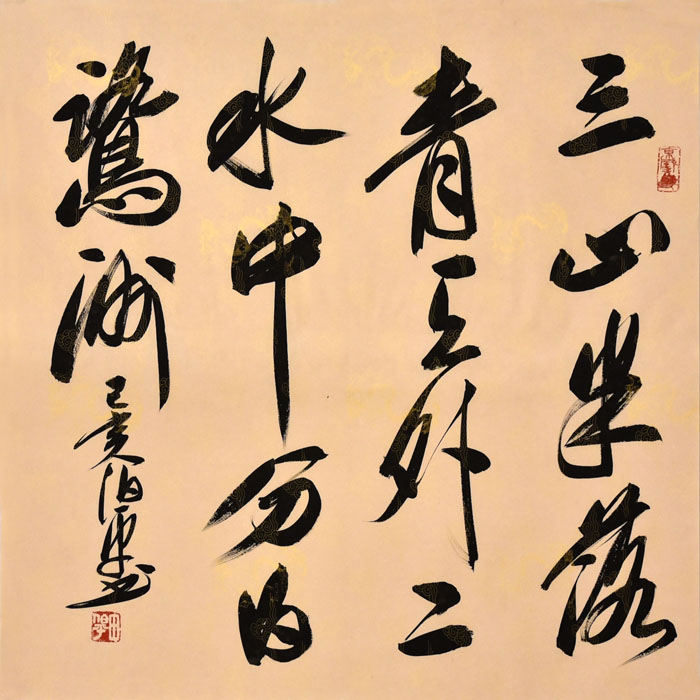 三山半落
青天外二
水中分白
鷺洲
己亥伯平书